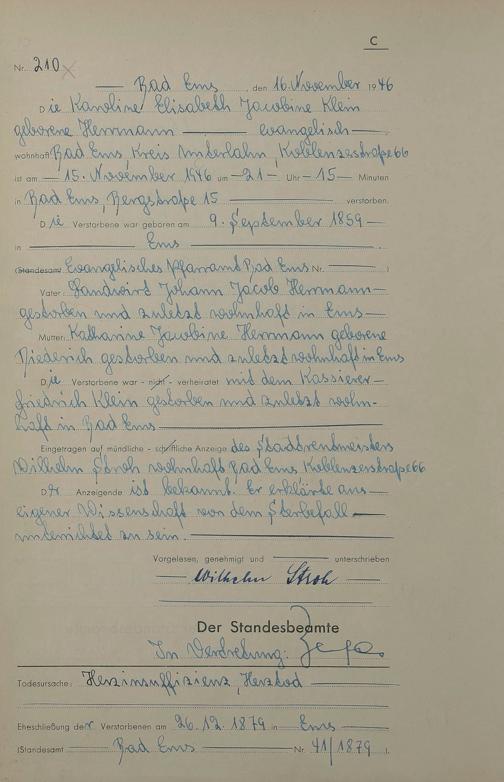 C
Nr. 210
Bad Ems, den 16. November 1946
Die Karoline Elisabeth Jacobine Klein
geborene Herrmann evangelisch
wohnhaft Bad Ems, Kreis Unterlahn, Koblenzerstraße 66
ist am 15. November 1946 um 21 Uhr 15 Minuten
in Bad Ems, Bergstraße 15 verstorben.
Die Verstorbene war geboren am 9. September 1859
in Ems.
(Standesamt Evangelisches Pfarramt Bad Ems Nr. )
Vater: Landwirt Johann Jacob Herrmann
gestorben und zuletzt wohnhaft in Ems
Mutter: Katharine Jacobine Herrmann geborene
Diederich gestorben und zuletzt wohnhaft in Ems
Die Verstorbene war - nicht - verheiratet mit dem Kassierer
Friedrich Klein gestorben und zuletzt wohn-
haft in Bad Ems
Eingetragen auf mündliche - schriftliche Anzeige des Stadtrentmeisters
Wilhelm Stroh wohnhaft Bad Ems Koblenzerstraße 66
Der Anzeigende ist bekannt. Er erklärte aus
eigener Wissenschaft von dem Sterbefall
unterrichtet zu sein.
Vorgelesen, genehmigt und unterschrieben
Wilhelm Stroh
Der Standesbeamte
In Vertretung:
Todesursache: Herzinsuffizienz, Herztod
Eheschließung der Verstorbenen am 26.12.1879 in Ems
(Standesamt Bad Ems Nr. 41/1879 ).